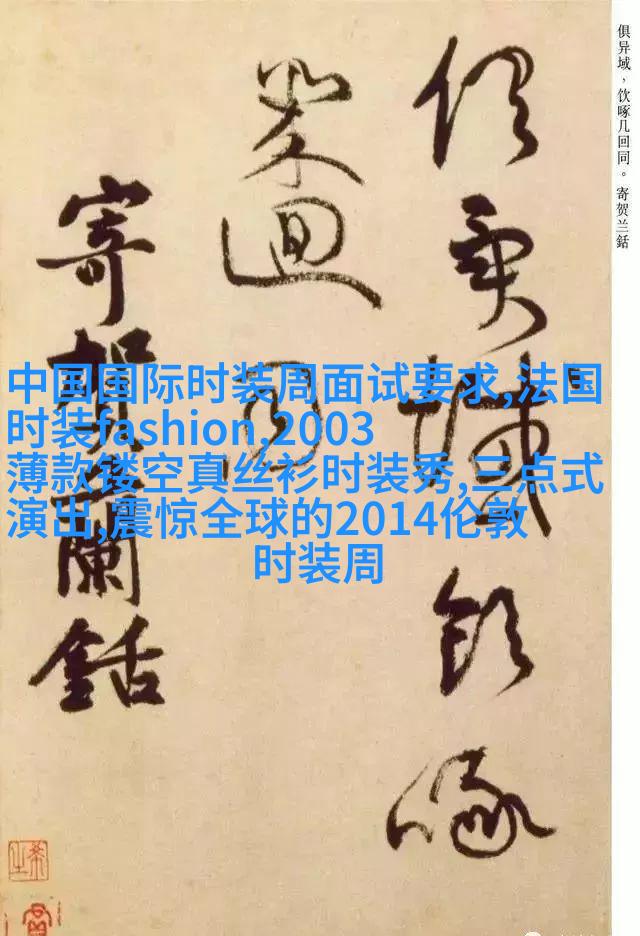 俱异域，饮啄几回同。寄贺兰銛
俱異域飲啄
幾迴同
寄賀蘭銛
中国国际时装周面试要求,法国
时装fashion,2003
薄款镂空真丝衫时装秀,三点式
演出,震惊全球的2014伦敦
时装周